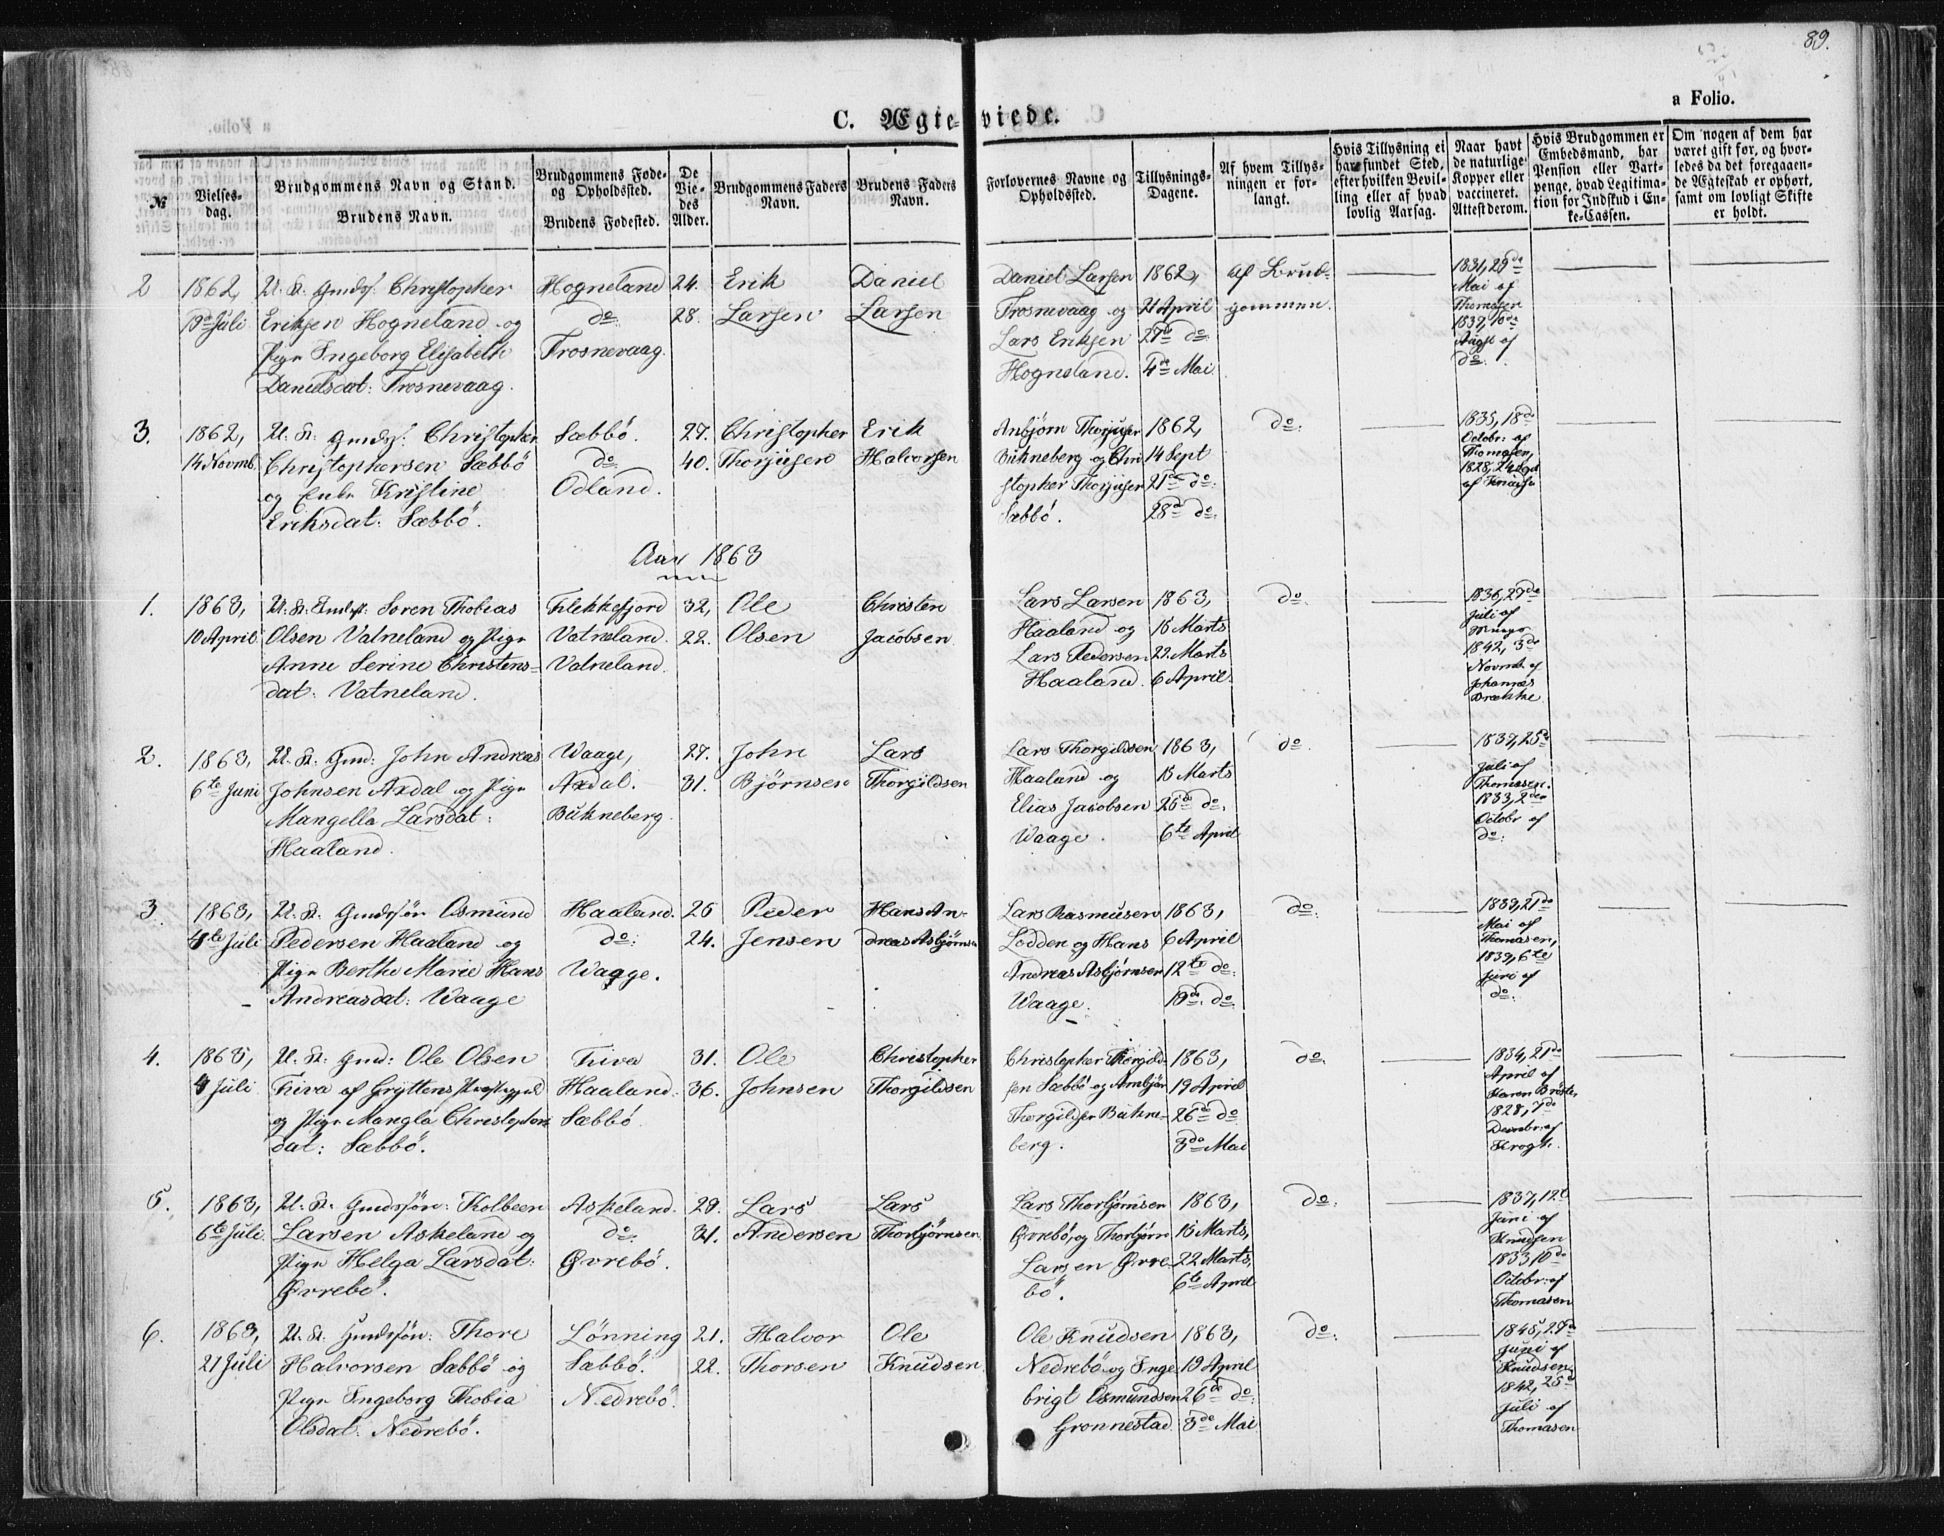 89.
a Folio.
C. Ægteviede.
№
Vielses-
dag.
Brudgommens Navn og Stand.
Brudens Navn.
Brudgommens Føde-
og Opholdssted.
Brudens Fødested.
De
Vie-
des
Alder.
Brudgommens Faders
Navn.
Brudens Faders
Navn.
Forlovernes Navne og
Opholdssted.
Tillysnings-
Dagene.
Af hvem Tillys-
ningen er for-
langt.
Hvis Tillysning ei
har fundet Sted,
efter hvilken Bevil-
ling eller af hvad
lovlig Aarsag.
Naar havt
de naturlige
Kopper eller
vaccineret.
Attest derom.
Hvis Brudgommen er
Embedsmand, har
Pension eller Vart-
penge, hvad Legitima-
tion for Indskud i En-
ke-Cassen.
Om nogen af dem har
været gift før, og hvor-
ledes da det foregaaen-
de Ægteskab er ophørt,
samt om lovligt Skifte
er holdt.
2
1862,
19de Juli
U. K. Gmds: Christopher
Eriksen Hogneland og
Pige Ingeborg Elisabeth
Danielsdat: Frosnevaag.
Hogneland
do
Frosnevaag.
24.
28.
Erik
Larsen
Daniel
Larsen
Daniel Larsen
Frosnevaag og
Lars Eriksen
Hogneland.
1862,
21 April
27de do
4de Mai
af Brud-
gommen.
1831, 29de
Mai af
Thomasen
1839, 10de
Augst af
do:
3.
1862,
14 Novmb.
U. K. Gmds: Christopher
Christophersen Sæbbö
og Enke Kristine
Eriksdat: Sæbbö.
Sæbbö.
do
Odland.
27.
40.
Christopher
Thorjusen
Erik
Halvorsen
Anbjørn Thorjusen
Bukneberg og Chri
stopher Thorjusen
Sæbbö.
1862,
14 Sept
21de do:
28de do:
do:
1835, 18de
Octobr: af
Thomasen,
1828, 24 Sept
af
Aar 1863
1.
1863,
10 April
U. K. Gmdss: Søren Thobias
Olsen Vatneland og Pige
Anne Serine Christens-
dat: Vatneland.
Flekkefjord
Vatneland.
Vatneland.
32,
22.
Ole
Olsen
Christen
Jacobsen
Lars Larsen
Haaland og
Lars Pedersen
Haaland.
1863,
15 Marts
22. Marts
6 April.
do.
1836, 27de
Juli af
1842, 3de
Novmb: af
Johannes
Brække
2.
1863,
6te Juni
U. K. Gmd: John Andreas
Johnsen Axdal og Pige
Mangella Larsdat:
Haaland.
Waage,
Axdal.
Bukneberg.
27.
31.
John
Bjørnsen
Lars
Thorgildsen
Lars Thorgildsen
Haaland og
Elias Jacobsen
Waage.
1863,
15 Marts
25de do.
6te April
do.
1839, 25de
Juli af
Thomasen.
1833, 2den
Octobr af
do:
3.
1863,
4de Juli
U. K. Gmdssøn Osmund
Pedersen Haaland og
Pige Berthe Marie Hans
Andreasdat: Waage
Haaland.
do:
Waage.
25
24.
Peder
Jensen
Hans An-
dreas Asbjørnsen
Lars Rasmusen
Lodden og Hans
Andreas Asbjørnsen
Waage.
1863,
6 April
12te do:
19de do:
do:
1839, 21de
Mai af
Thomasen,
1839, 6te
Juni af
do:
4.
1863,
4 Juli
U. K: Gmd: Ole Olsen
Fiva af Gryttens Præstegjeld
og Pige Mangla Christophers
dat: Sæbbö.
Fiva
Haaland.
Sæbbö.
31.
36.
Ole
Johnsen
Christopher
Thorgildsen
Christopher Thorgild-
sen Sæbbö og Arnbjør
Thorgildsen Bukne-
berg.
1863,
19 April
26de do
3de Mai
do:
1834, 21de
April af
Søren Bröste,
1828, 7de
Decmbr: af
Krogh.
5.
1863,
6te Juli.
U. K. Gmdssøn: Kolbeen
Larsen Askeland og
Pige Helga Larsdat:
Øvrebö.
Askeland.
do.
Øvrebö.
29.
31.
Lars
Andersen
Lars
Thorbjørnsen
Lars Thorbjørnsen
Øvrebö, og Thorbjørn
Larsen Øvre-
bö.
1863,
15 Marts,
22 Marts,
6te April
do:
1837, 12te
Juni af
Knudsen
1833, 10de
Octobr: af
Thomasen
6.
1863,
21 Juli
U. K. Gmdssøn: Thore
Halvorsen Sæbbö og
Pige Ingeborg Thobia
Olsdat: Nedrebö.
Lönning
Sæbbö.
Nedrebö.
21.
22.
Halvor
Thorsen
Ole
Knudsen
Ole Knudsen
Nedrebö og Inge
brigt Osmundsen
Grønnestad.
1863,
19 April
26de do:
3de Mai
do:
1845, 27de
Juni af
Knudsen,
1842, 25de
Juli af
Thomasen